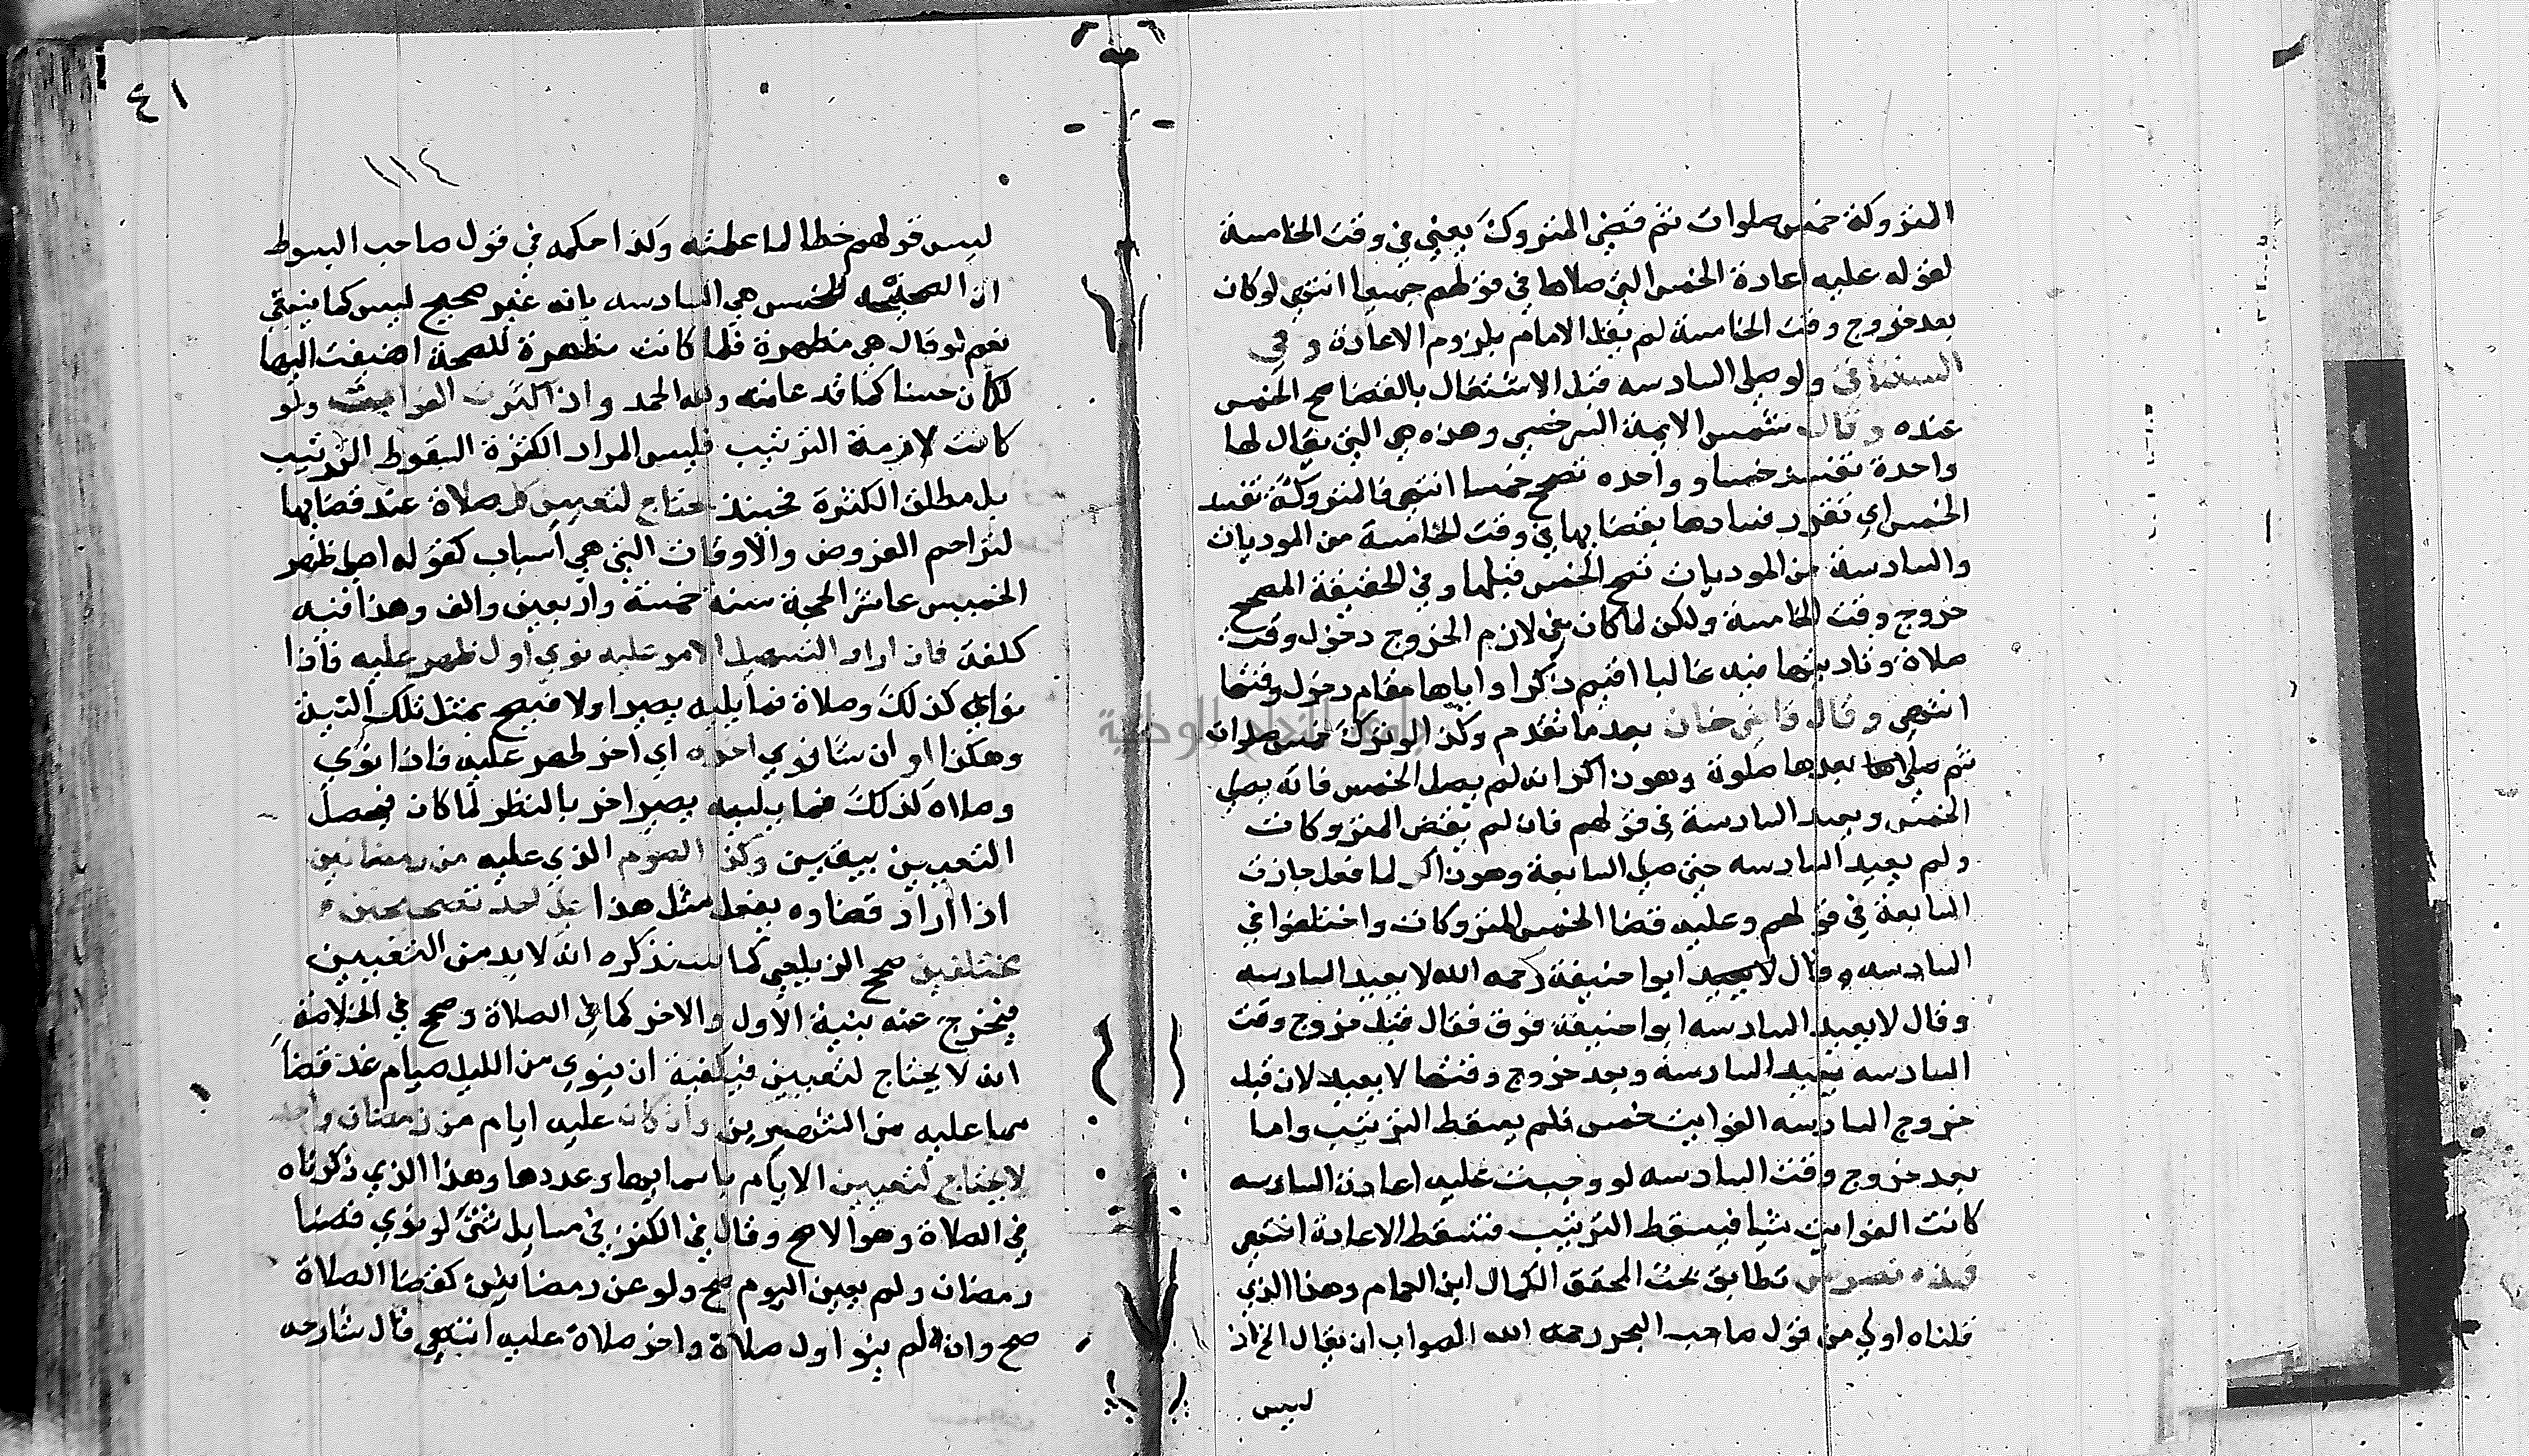 المتروكة خمس صلوات ثم قضى المتروكة يعني في وقت الخامسة
لقوله عليه اعادة الخمس التي صلاها في قولهم جميعا انتهى لو كان
بعد خروج وقت الخامسة لم يقل الامام بلزوم الاعادة وفي
ولو صلى السادسه قبل الاشتغال بالقضا صح الخمس
عنده وقال شمس الايمة السرخسي وهذه هي التي يقال لها
واحدة تفسد خمسا وواحده تصحح خمسا انتهى فالمتروكة تفسد
الخمس اي تقرر فسادها بقضايها في وقت الخامسة من الموديات
والسادسة من الموديات تصحح الخمس قبلها وفي الحقيقة المصحح
خروج وقت الخامسة ولكن لما كان من لازم الخروج دخول وقت
صلاة وتاديتها فيه غالبا اقيم ذكرا واياها مقام دخول وقتها
انتهى وقال قاضي خان بعد ما تقدم وكذا لو ترك خمس صلوات
ثم صلى بعدها صلوة وهو ذاكر انه لم يصل الخمس فانه يصلي
الخمس ويعيد السادسة في قولهم فان لم يقض المتروكات
ولم يعيد السادسه حتى صلى السابعة وهو ذاكر لما فعل جازت
السابعة في قولهم وعليه قضا الخمس المتروكات واختلفوا في
السادسه وقال لا يعيد ابوا حنيفة رحمه الله لا يعيد السادسه
وقال لا يعيد السادسه ابوا حنيفة فرق فقال قبل خروج وقت
السادسه يعيد السادسة وبعد خروج وقتها لا يعيد لان قبل
خروج السادسه الفوايت خمس فلم يسقط الترتيب واما
بعد خروج وقت السادسه لو وجبت عليه اعادة السادسه
كانت الفوايت ستا فيسقط الترتيب فتسقط الاعادة انتهى
فهذه نصوص تطابق بحث المحقق الكمال ابن الهمام وهذا الذي
قلناه اولى من قول صاحب البحر رحمه الله الصواب ان يقال الخ اذ
ليس
٤١
١١٤
ليس قولهم خطا لما علمته وكذا حكمه في قول صاحب المبسوط
ان المصححة للخمس هي السادسه بانه غير صحيح ليس كما ينبغي
نعم لو قال هي مظهرة فلما كانت مظهرة للصحة اضيفت اليها
لكان حسنا كما قد علمته ولله الحمد واذا كثرت الفوايت ولو
كانت لازمة الترتيب فليس المراد الكثرة السقوط الترتيب
بل مطلق الكثرة فحينئذ يحتاج لتعيين كل صلاة عند قضايها
لتزاحم الفروض والاوقات التي هي اسباب كقوله اصلي ظهر
الخميس عاشر الحجة سنة خمسة واربعين والف وهذا فيه
كلفة فان اراد التسهيل الامر عليه نوى اول ظهر عليه فاذا
نواه كذلك وصلاة فما يليه يصير اولا فيصح بمثل تلك النية
وهكذا او ان شا نوى اخره اي اخر ظهر عليه فاذا نوى
وصلاه كذلك فما يليه يصير اخر بالنظر لما كان فيحصل
التعيين بيقين وكذا الصوم الذي عليه من رمضانين
اذا اراد قضاوه يفعل مثل هذا على احد تصحيحين
مختلفين صحح الزيلعي كما سنذكره انه لا بد من التعيين
فيخرج عنه بنية الاول والاخر كما في الصلاة وصحح في الخلاصة
انه لا يحتاج لتعيين فيكفيه ان ينوي من الليل صيام غد قضا
مما عليه من الشهرين وان كان عليه ايام من رمضان واحد
لا يحتاج لتعيين الايام باسمايها وعددها وهذا الذي ذكرناه
في الصلاة وهو الاصح وقال في الكنز في مسايل شتى لو نوى قضا
رمضان ولم يعين اليوم صح ولو عن رمضانين كقضا الصلاة
صح وان لم ينو اول صلاة واخر صلاة عليه انتهى قال شارحه